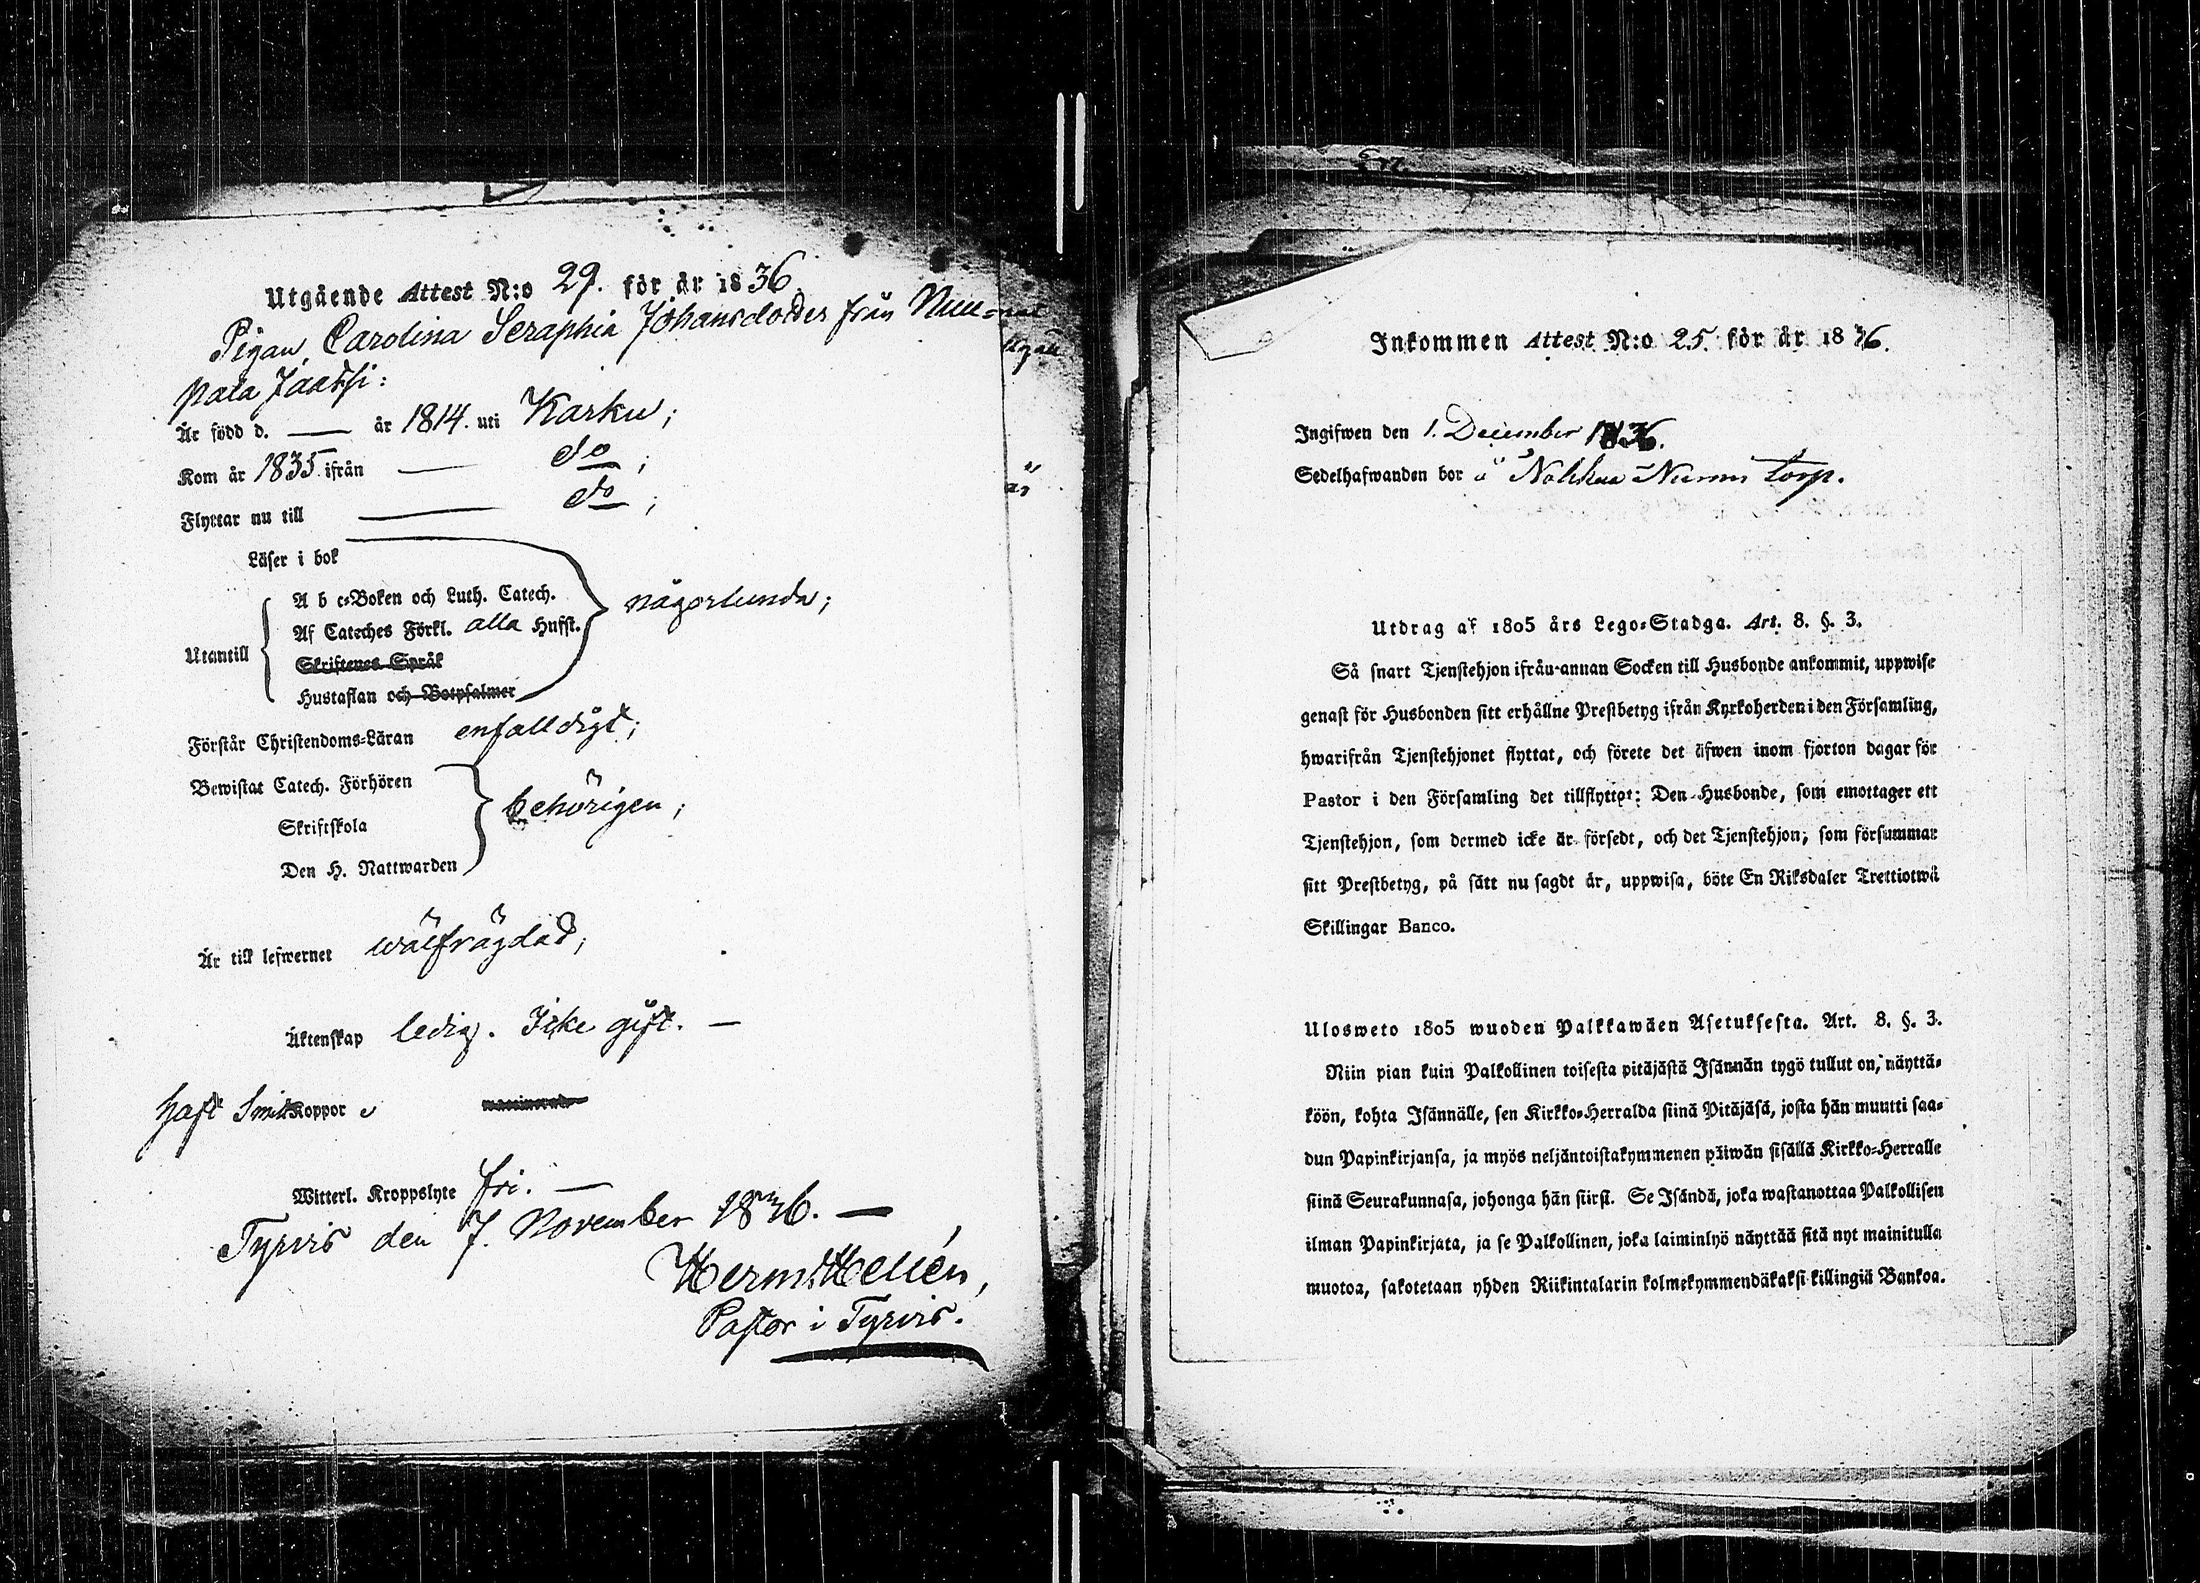 Utgående Attest N:o 29. för år 1836.
Pigan, Carolina Seraphia Johansdotter från Nuu=
pala Jaatsi:
Är född d. — år 1814. uti Karku;
Kom år 1835 ifrån — do;
Flyttar nu till — do;
Läser i bok
A b c=Boken och Luth. Catech.
någorlunda;
Af Cateches Förkl. alla Hufst.
Utantill
Skriftenes Språk
Hustaflan och Botpsalmer
Förstår Christendoms=Läran enfalldigt;
Bewistat Catech. Förhören
behörigen;
Skriftskola
Den H. Nattwarden
Är till lefwernet wälfrägdad;
Äktenskap ledig. Icke gift. —
haft Smittkoppor
Witterl. Kroppslyte fri. —
Tyrvis den 7. November 1836. —
Herm. Hellén,
Pastor i Tyrvis.
Inkommen Attest N:o 25. för år 1836.
Ingifwen den 1. December 1836.
Sedelhafwanden bor å Nohkua Nurmi torp.
Utdrag af 1805 års Lego=Stadga. Art. 8. §. 3.
Så snart Tjenstehjon ifrån annan Socken till Husbonde ankommit, uppwise
genast för Husbonden sitt erhållne Prestbetyg ifrån Kyrkoherden i den Församling,
hwarifrån Tjenstehjonet flyttat, och förete det äfwen inom fjorton dagar för
Pastor i den Församling det tillflyttat: Den Husbonde, som emottager ett
Tjenstehjon, som dermed icke är försedt, och det Tjenstehjon, som försummar
sitt Prestbetyg, på sätt nu sagdt är, uppwisa, böte En Riksdaler Trettiotwå
Skillingar Banco.
Ulosweto 1805 wuoden Palkkawäen Asetuksesta. Art. 8. §. 3.
Niin pian kuin Palkollinen toisesta pitäjästä Isännän tygö tullut on, näyttä=
köön, kohta Isännälle, sen Kirkko=Herralda siinä Pitäjäsä, josta hän muutti saa=
dun Papinkirjansa, ja myös neljäntoistakymmenen päiwän sisällä Kirkko=Herralle
siinä Seurakunnasa, johonga hän siirsi. Se Isändä, joka wastanottaa Palkollisen
ilman Papinkirjata, ja se Palkollinen, joka laiminlyö näyttää sitä nyt mainitulla
muotoa, sakotetaan yhden Riikintalarin kolmekymmendäkaksi killingiä Bankoa.